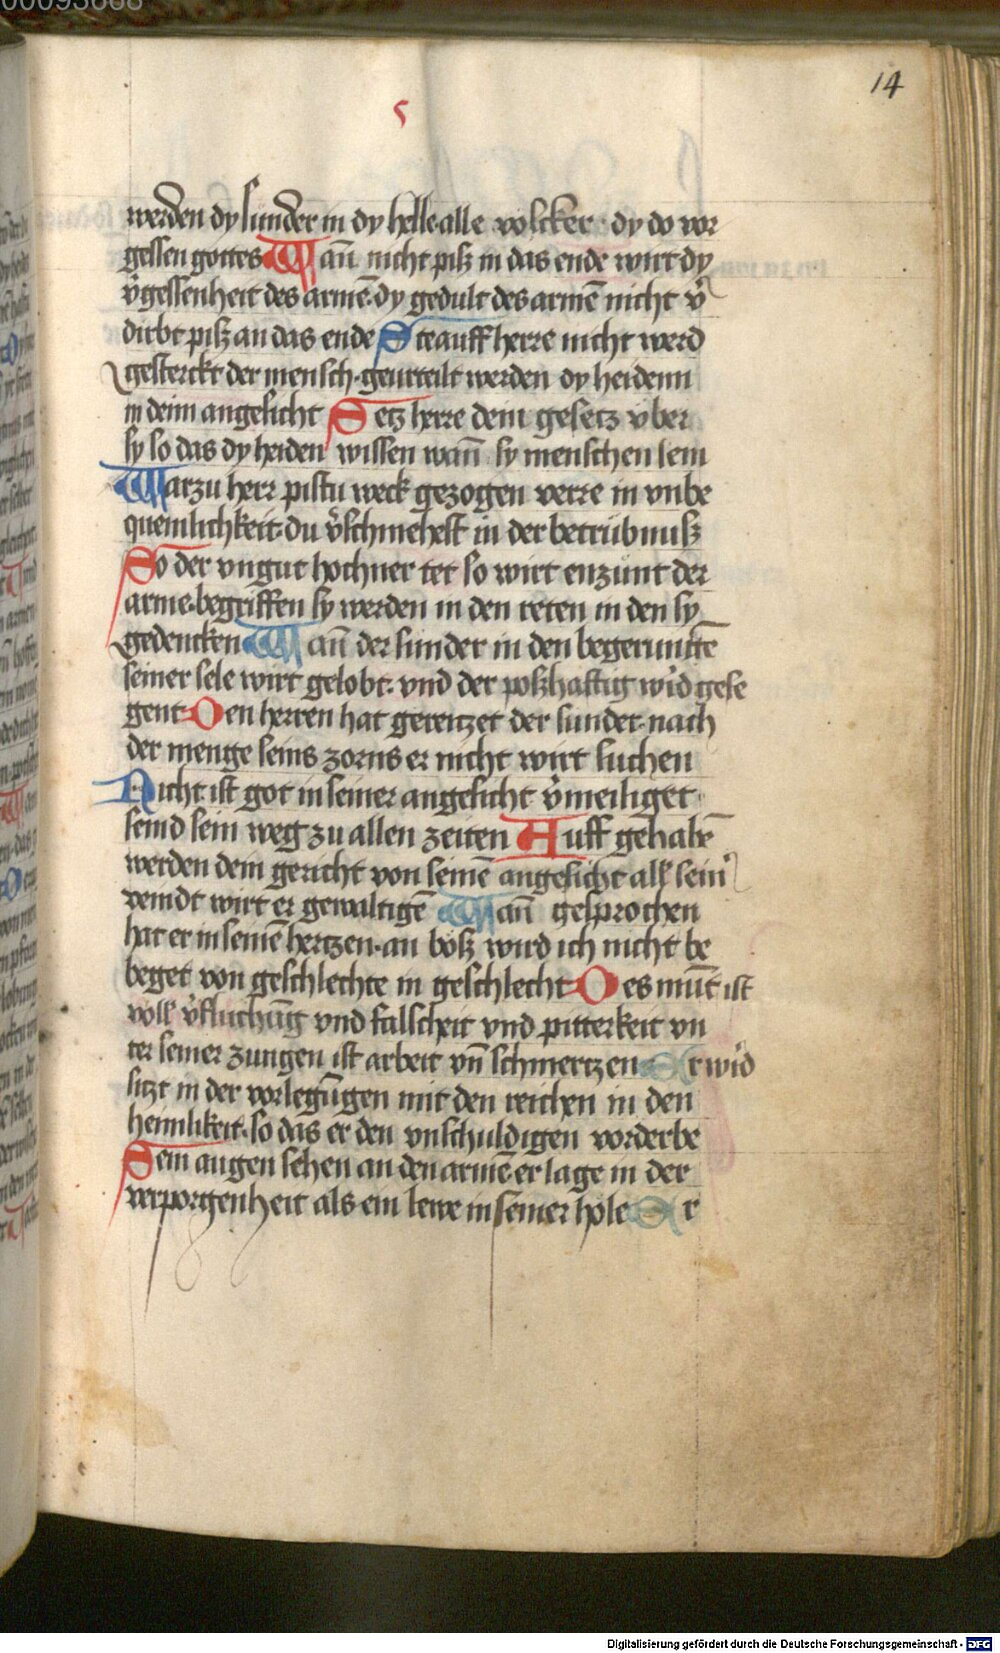 00093668
14
5
werden dy sunder in dy helle alle volcker · dy do vor
gessen gottes Wañ nicht piß in das ende wirt dy
v̉gessenheit des armẽ · dy gedult des armẽ nicht v̉
dirbt piß an das ende Ste auff herre nicht werd
gesterckt der mensch · geurteilt werden dy heidenn
in deim angesicht Setz herre dein gesetz vber
sy so das dy heiden wissen wañ sy menschen sein
Warzu herr pistu weck gezogen verre in vnbe
quemlichkeit · du v̉schmehest in der betrübnuß
So der vngut hochuer tet so wirt enzunt der
arme · begriffen sy werden in den reten in den sy
gedencken Wañ der sunder in den begerunttẽ
seiner sele wirt gelobt · vnd der poßhafftig wỉd gese
gent Den herren hat gereitzet der sunder · nach
der menge seins zorns er nicht wirt suchen
Nicht ist got in seiner angesicht v̉meiliget
seind sein weg zu allen zeiten Auff gehabẽ
werden dein gericht von seinẽ angesicht all sein̉
veindt wirt er gewaltigẽ Wañ gesprochen
hat er in seinẽ hertzen · an böß wird ich nicht be
beget von geschlechte in geschlecht Des mūt ist
voll v̉fluchūg vnd falscheit vnd pitterkeit vn
ter seiner zungen ist arbeit vn̄ schmertzen Er wỉd
sitzt in der vorlegūgen mit den reichen in den
heimlikeit · so das er den vnschuldigen vorderbe
Sein augen sehen an den armẽ er lage in der
verporgenheit als ein lewe in seiner hole Er
Digitalisierung gefördert durch die Deutsche Forschungsgemeinschaft - DFG